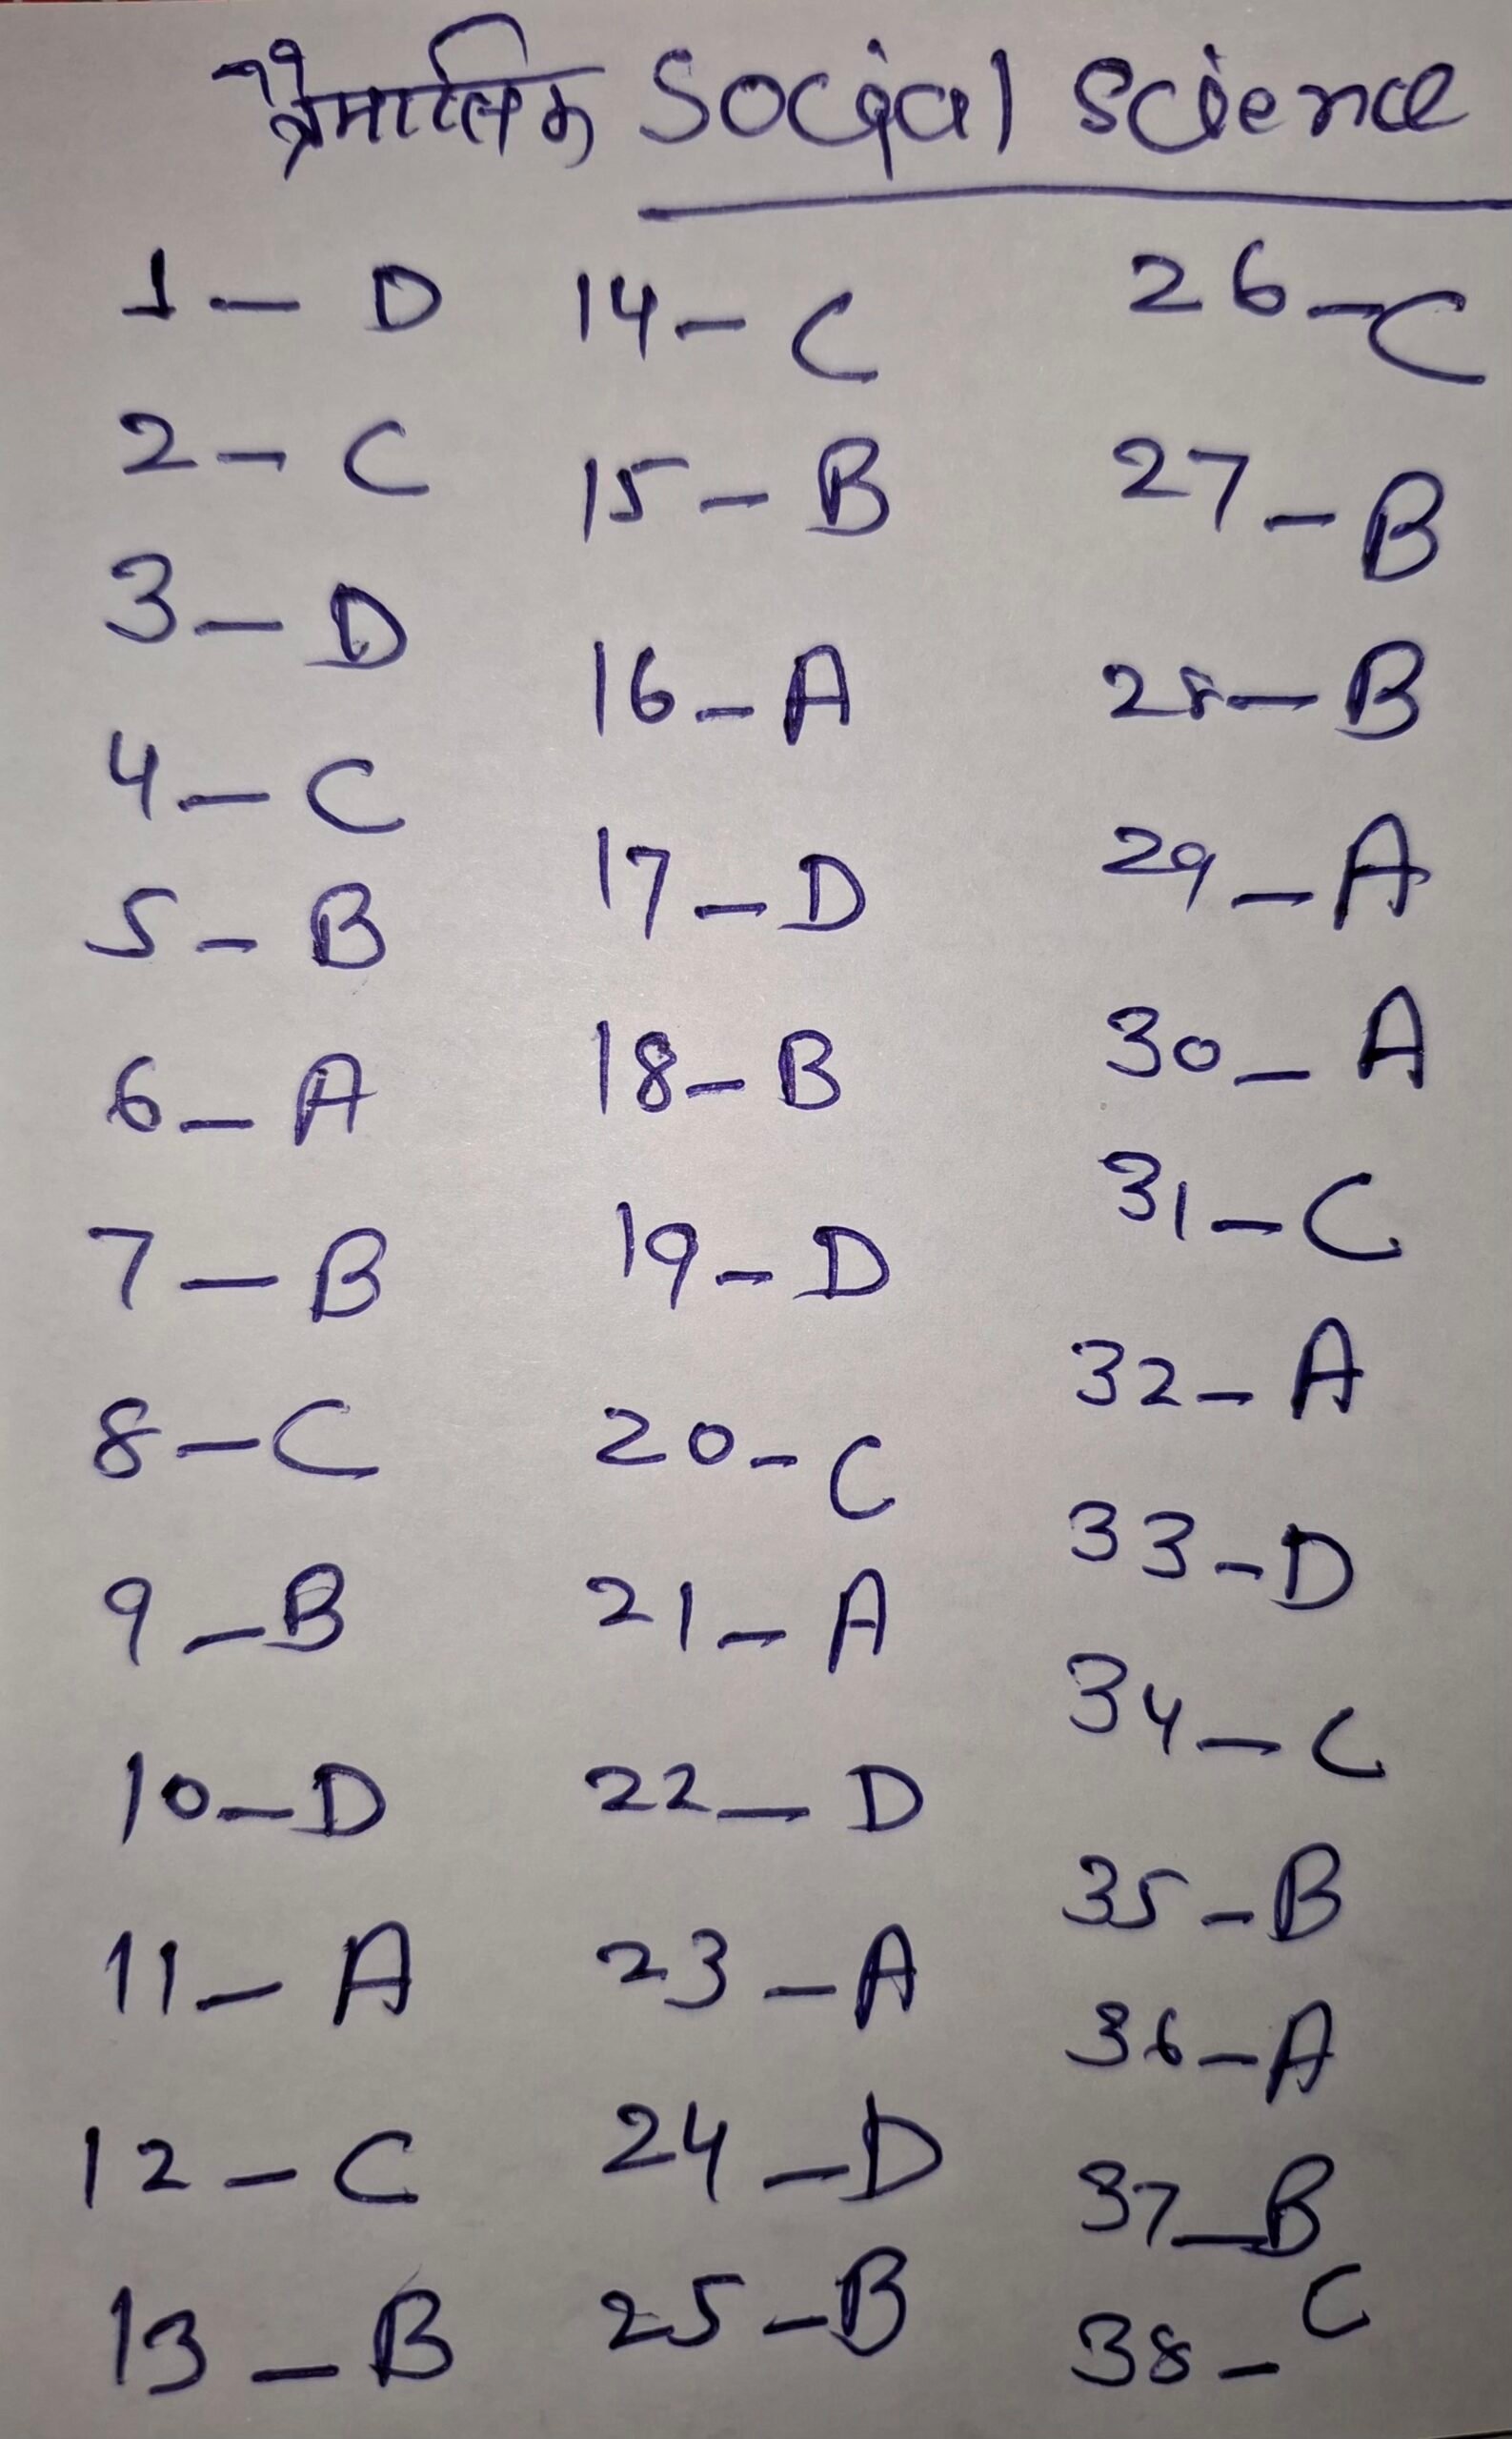 त्रैमासिक Social Science
1 - D
2 - C
3 - D
4 - C
5 - B
6 - A
7 - B
8 - C
9 - B
10 - D
11 - A
12 - C
13 - B
14 - C
15 - B
16 - A
17 - D
18 - B
19 - D
20 - C
21 - A
22 - D
23 - A
24 - D
25 - B
26 - C
27 - B
28 - B
29 - A
30 - A
31 - C
32 - A
33 - D
34 - C
35 - B
36 - A
37 - B
38 - C